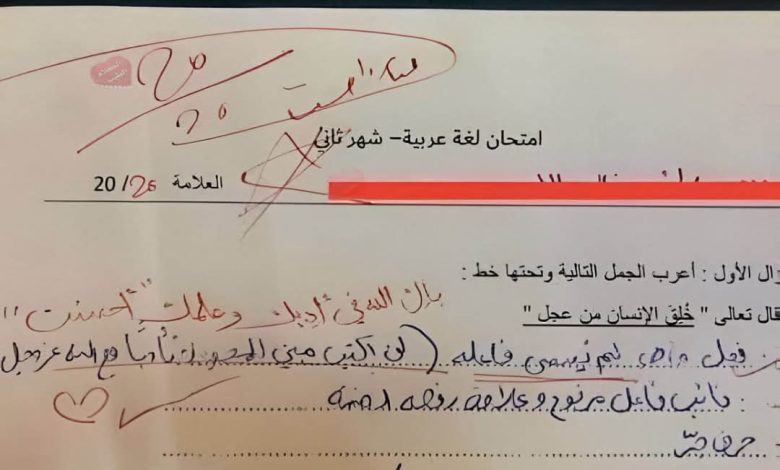 ممتاز أحسنت
20
20
امتحان لغة عربية – شهر ثاني
العلامة 20/20
ؤال الأول : أعرب الجمل التالية وتحتها خط :
بارك الله في أدبك وعلمك "أحسنت"
قال تعالى " خُلِقَ الإنسان من عجل "
فعل ماضٍ لم يُسمى فاعله (لن اكتب مبني للمجهول تأدبًا مع الله عز وجل
: نائب فاعل مرفوع وعلامة رفعه الضمة
: حرف جرّ